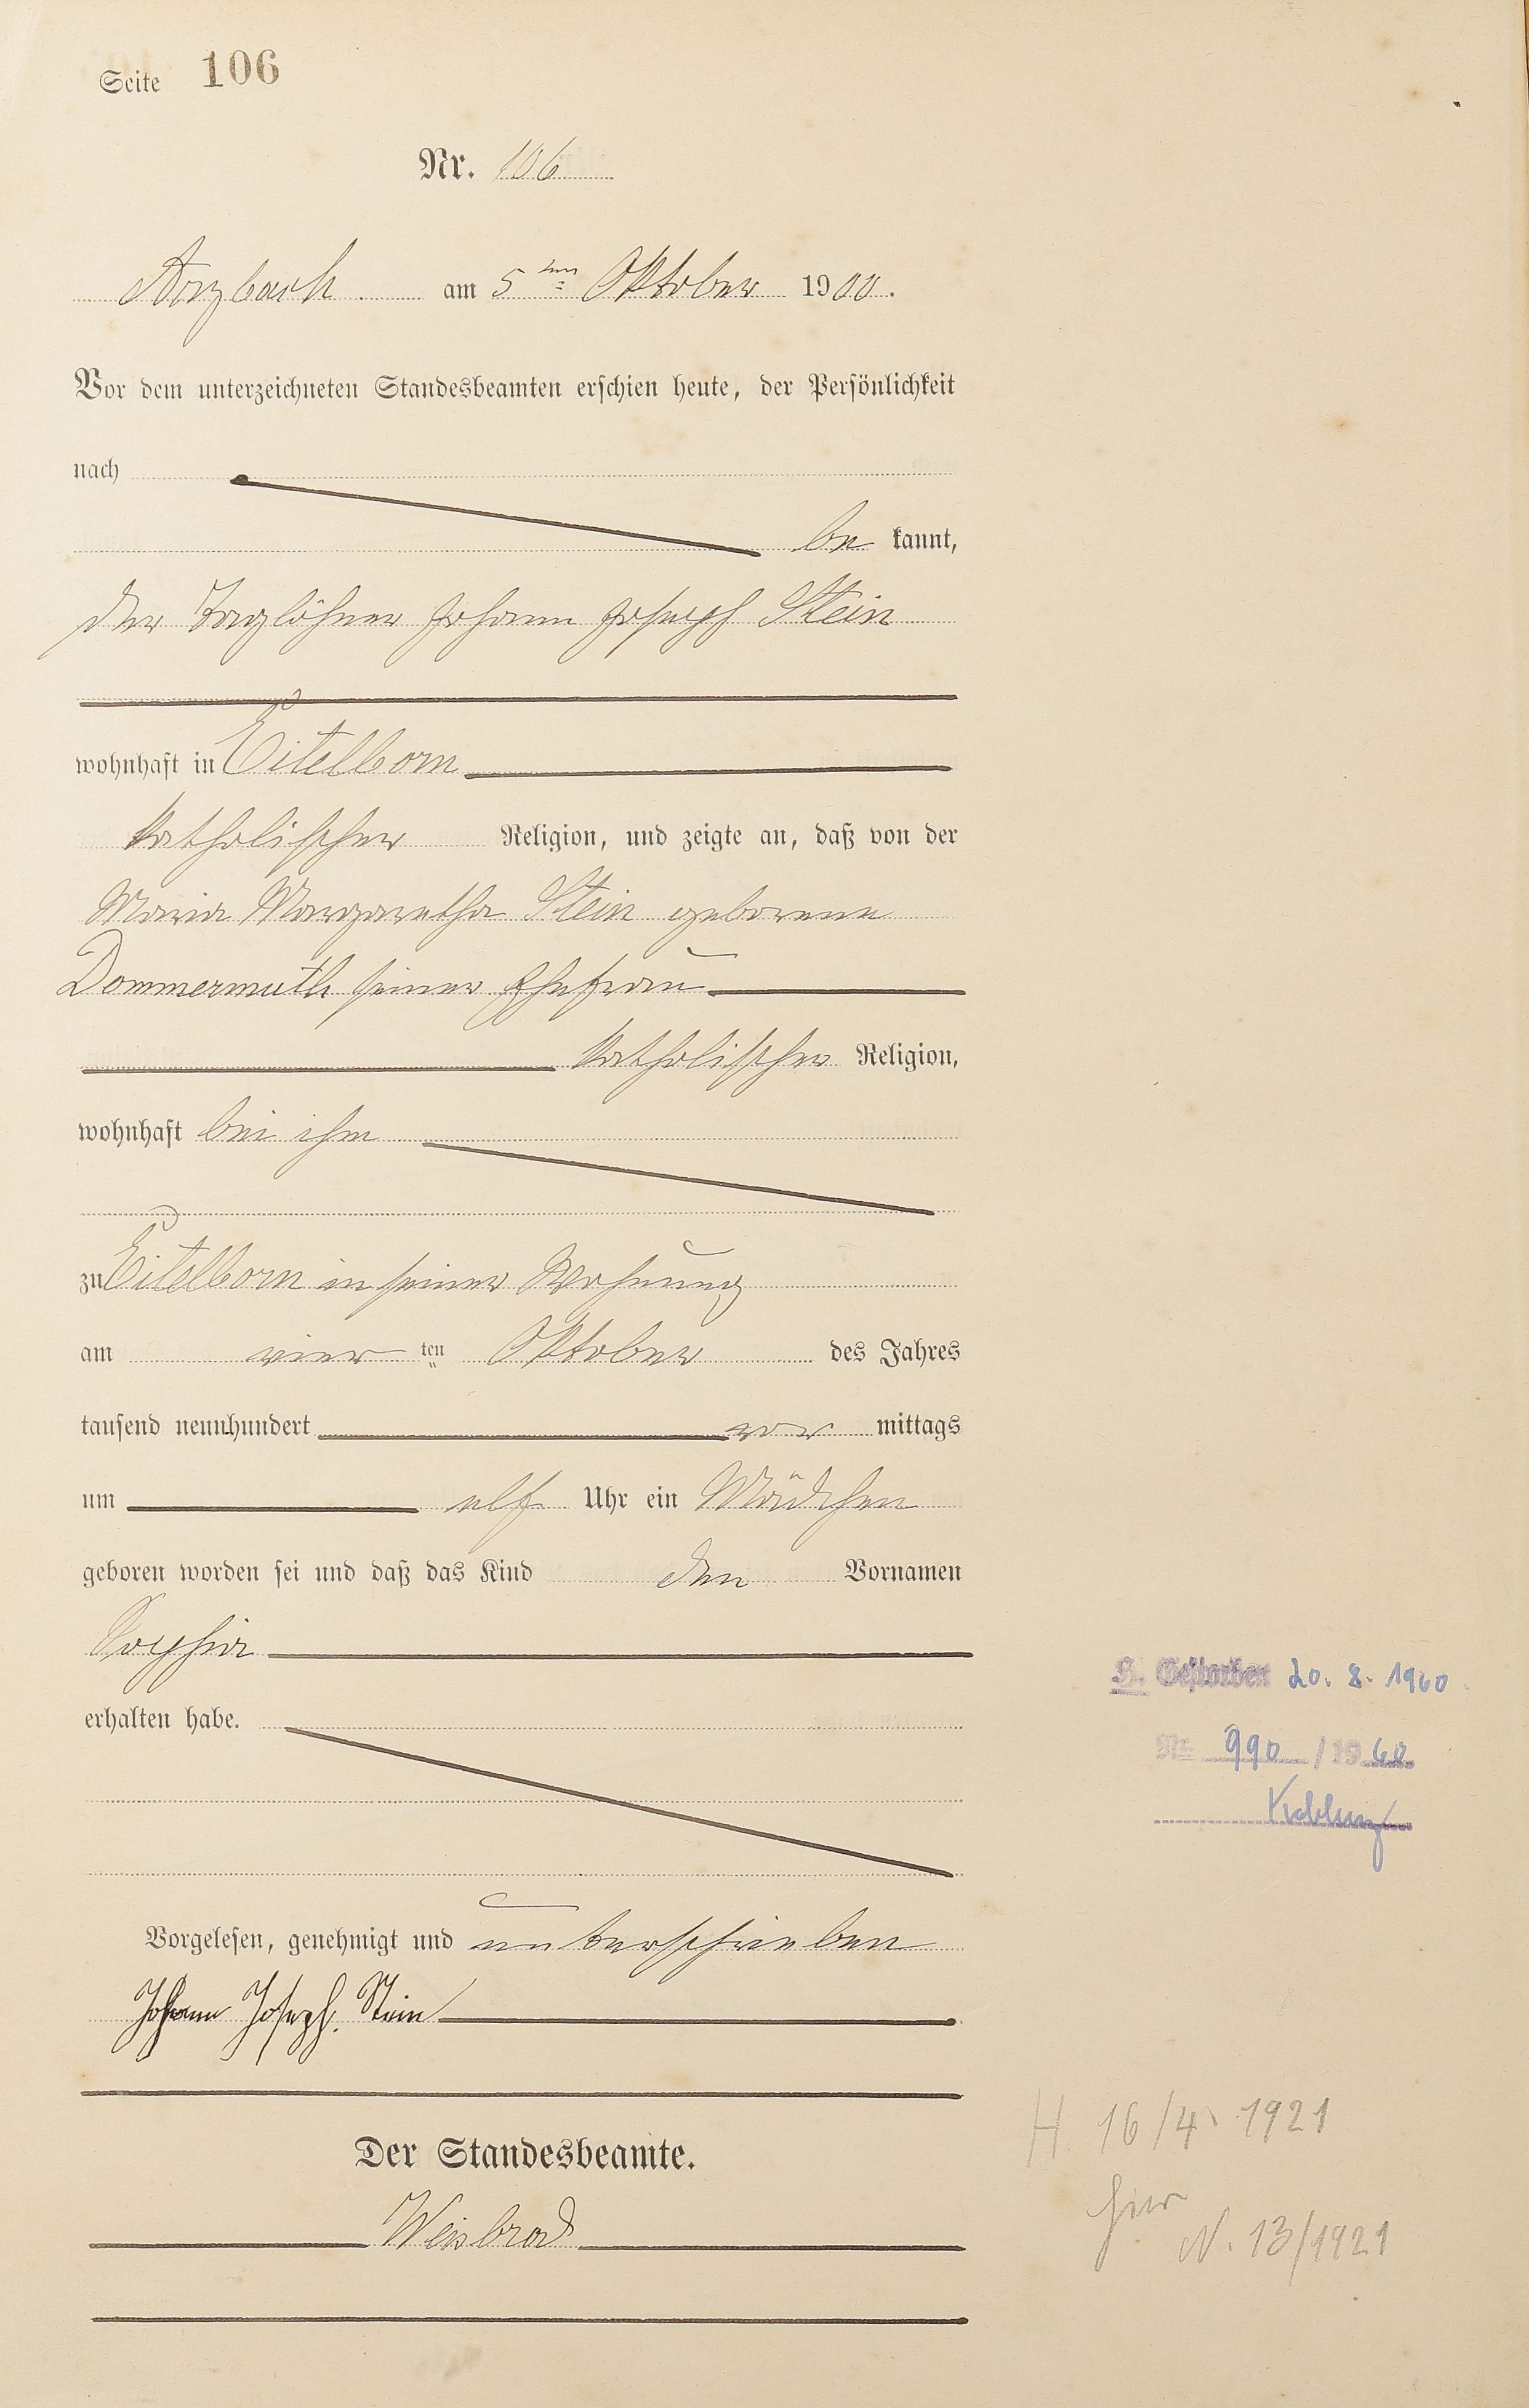 Seite 106
Nr. 106
Arzbach am 5ten Oktober 1900.
Vor dem unterzeichneten Standesbeamten erschien heute, der Persönlichkeit
nach
be kannt,
der Taglöhner Johann Joseph Stein
wohnhaft in Eitelborn
katholischer Religion, und zeigte an, daß von der
Maria Margaretha Stein geborene
Dommermuth seiner Ehefrau
katholischer Religion,
wohnhaft bei ihm
zu Eitelborn in seiner Wohnung
am vier ten Oktober des Jahres
tausend neunhundert vor mittags
um elf Uhr ein Mädchen
geboren worden sei und daß das Kind den Vornamen
Sophia
erhalten habe.
Vorgelesen, genehmigt und unterschrieben
Johann Joseph Stein
Der Standesbeamte.
Weisbrod
Gestorben 20. 8. 1960
Nr. 990 / 1960
Koblenz
H 16/4. 1921
hier
N. 13/1921